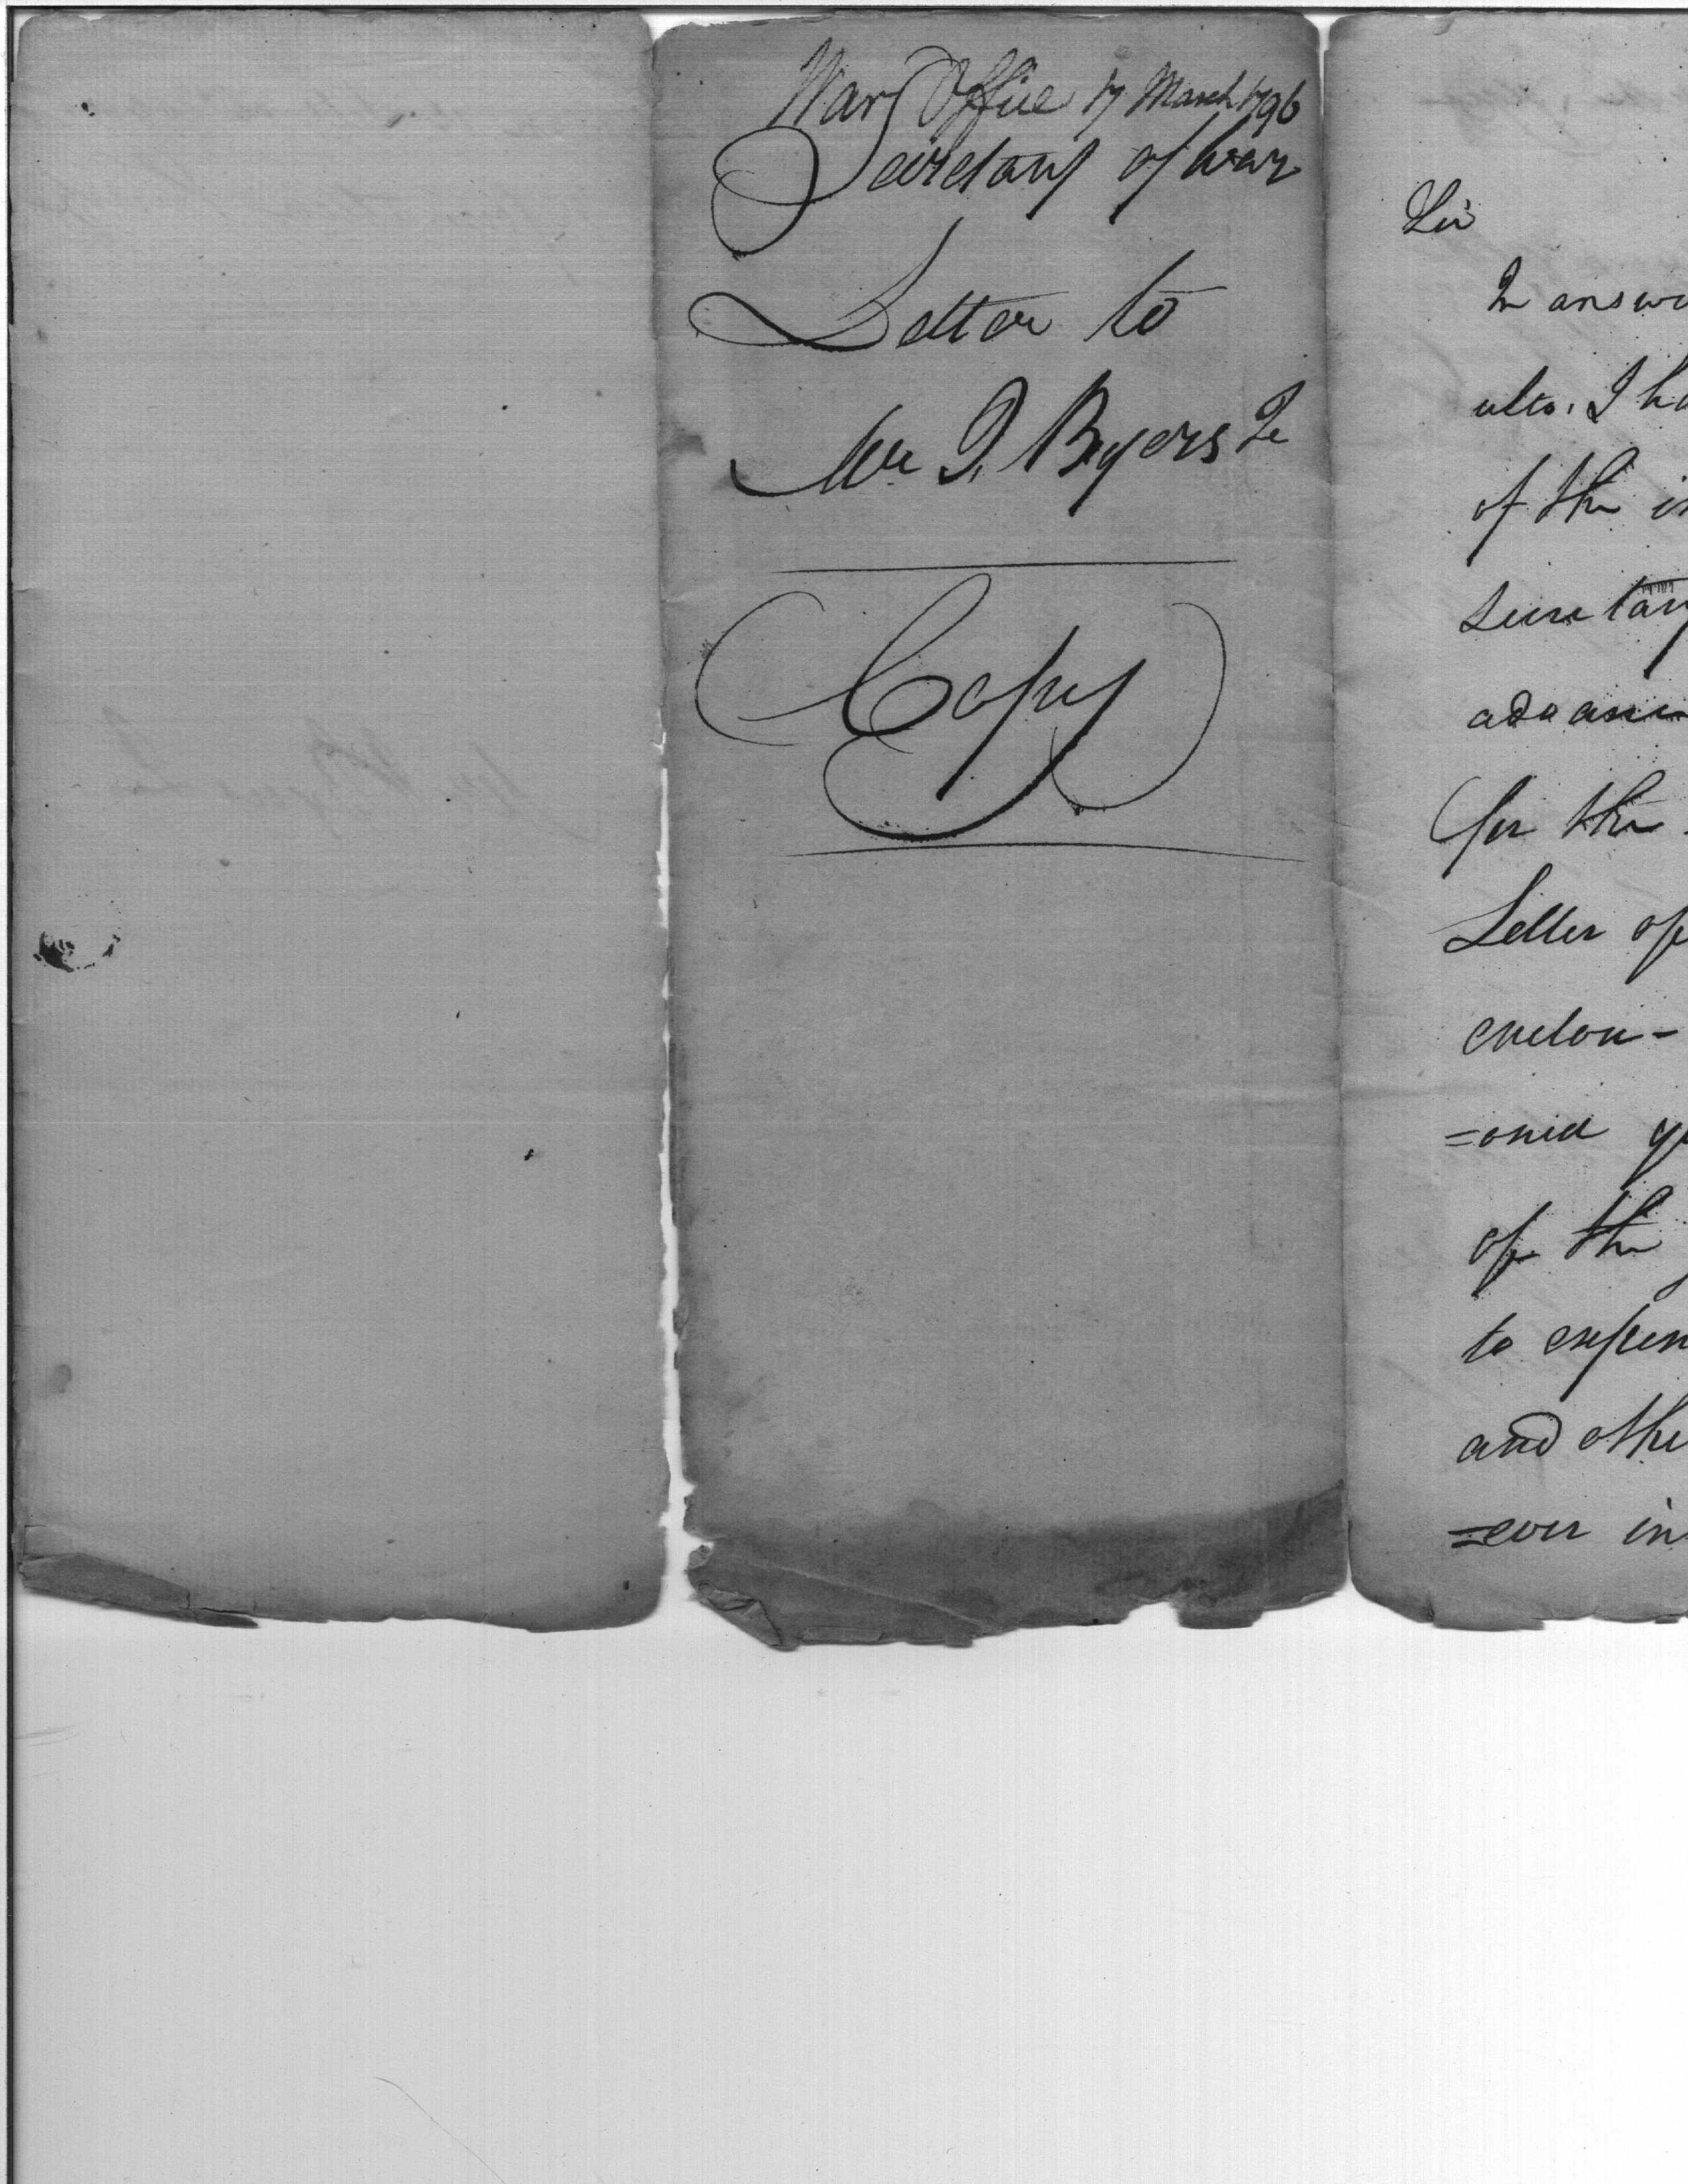 War Office 17 March 1796
Secretary of War
Letter to
Mr J. Byers
Copy
Sir
In answe
ulto. I ha
of the in
secretary
advanc
for the
Letter of
endow-
=oned yo
of the
to expen
and othe
=ever in